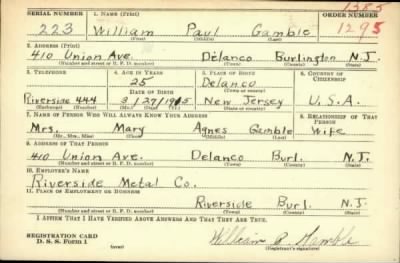 SERIAL NUMBER 1. NAME (Print) ORDER NUMBER 1385
223 William Paul Gamble 1295
(First) (Middle) (Last)
2. ADDRESS (Print)
410 Union Ave. Delanco Burlington N.J.
(Number and street or R. F. D. number) (Town) (County) (State)
3. TELEPHONE 4. AGE IN YEARS 5. PLACE OF BIRTH 6. COUNTRY OF CITIZENSHIP
25 Delanco
DATE OF BIRTH (Town or county)
Riverside 444 3/27/1915 New Jersey U.S.A.
(Exchange) (Number) (Mo.) (Day) (Yr.) (State or country)
7. NAME OF PERSON WHO WILL ALWAYS KNOW YOUR ADDRESS 8. RELATIONSHIP OF THAT PERSON
Mrs. Mary Agnes Gamble Wife
(Mr., Mrs., Miss) (First) (Middle) (Last)
9. ADDRESS OF THAT PERSON
410 Union Ave. Delanco Burl. N.J.
(Number and street or R. F. D. number) (Town) (County) (State)
10. EMPLOYER'S NAME
Riverside Metal Co.
11. PLACE OF EMPLOYMENT OR BUSINESS
Riverside Burl. N.J.
(Number and street or R. F. D. number) (Town) (County) (State)
I AFFIRM THAT I HAVE VERIFIED ABOVE ANSWERS AND THAT THEY ARE TRUE.
REGISTRATION CARD
D. S. S. Form 1 (over) William P. Gamble
(Registrant's signature)